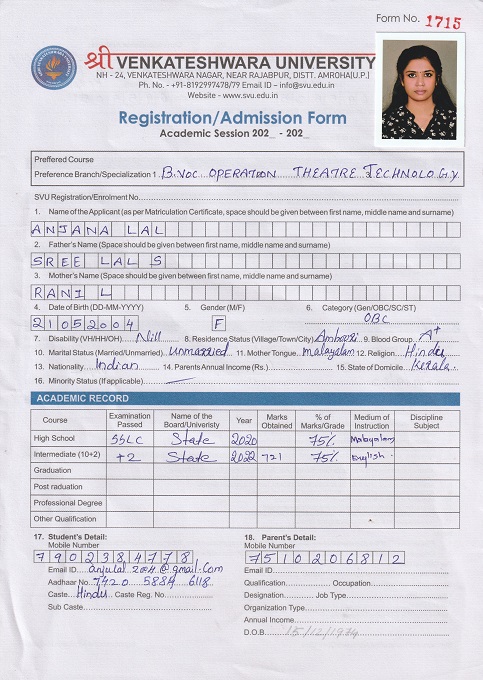 Form No. 1715
श्री VENKATESHWARA UNIVERSITY
NH - 24, VENKATESHWARA NAGAR, NEAR RAJABPUR, DISTT. AMROHA[U.P.]
Ph. No. - +91-8192997478/79 Email ID – info@svu.edu.in
Website - www.svu.edu.in
Registration/Admission Form
Academic Session 202_ - 202_
Preffered Course
Preference Branch/Specialization 1. B.VOC OPERATION THEATRE TECHNOLOGY
SVU Registration/Enrolment No.
1. Name of the Applicant (as per Matriculation Certificate, space should be given between first name, middle name and surname)
ANJANA LAL
2. Father's Name (Space should be given between first name, middle name and surname)
SREE LAL S
3. Mother's Name (Space should be given between first name, middle name and surname)
RANI L
4. Date of Birth (DD-MM-YYYY) 5. Gender (M/F) 6. Category (Gen/OBC/SC/ST)
21052004 F OBC
7. Disability (VH/HH/OH). Nill 8. Residence Status (Village/Town/City) 9. Blood Group. A+
10. Marital Status (Married/Unmarried). unmarried 11. Mother Tongue. malayalam 12. Religion. Hindu
13. Nationality. Indian 14. Parents Annual Income (Rs.) 15. State of Domicile. Kerala.
16. Minority Status (If applicable).
ACADEMIC RECORD
Course Examination Passed Name of the Board/Univeristy Year Marks Obtained % of Marks/Grade Medium of Instruction Discipline Subject
High School SSLC State 2020 75% Malayalam
Intermediate (10+2) +2 State 2022 721 75% English
Graduation
Post raduation
Professional Degree
Other Qualification
17. Student's Detail: 18. Parent's Detail:
Mobile Number Mobile Number
7902384778 7510206812
Email ID. @gmail.com Email ID.
Aadhaar No. 7420 5884 6118 Qualification. Occupation.
Caste. Hindu Caste Reg. No. Designation. Job Type.
Sub Caste Organization Type
Annual Income
D.O.B. 15/12/1974